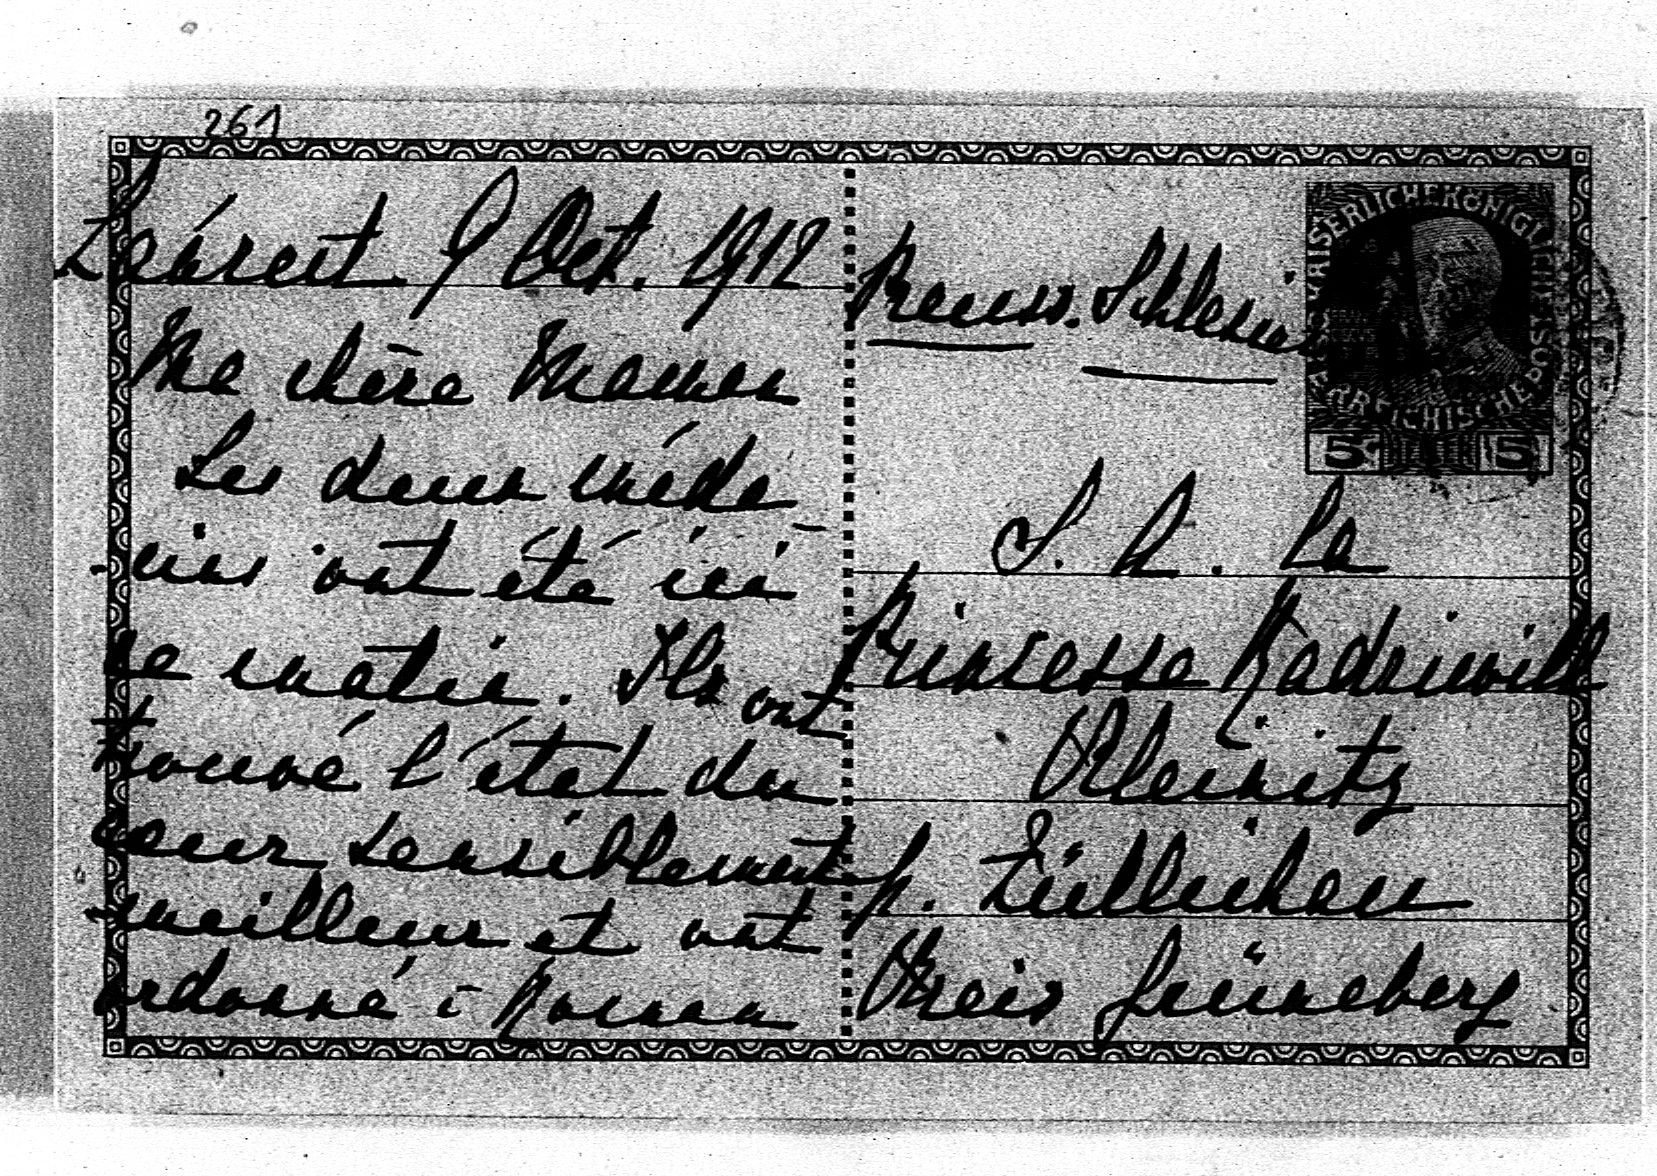 261
Łańcut 9 Oct. 1912
Ma chère Maman
Les deux méde-
cins ont été ici
ce matin. Ils ont
trouvé l'état du
coeur sensiblement
meilleur et ont
ordonné à Roman
Preuss. Schlesien
KAISERLICHE KÖNIGLICHE ÖSTERREICHISCHE POST
5 5
S. A. la
Princesse Radziwill
Kleinitz
p. Züllichau
Kreis Grüneberg